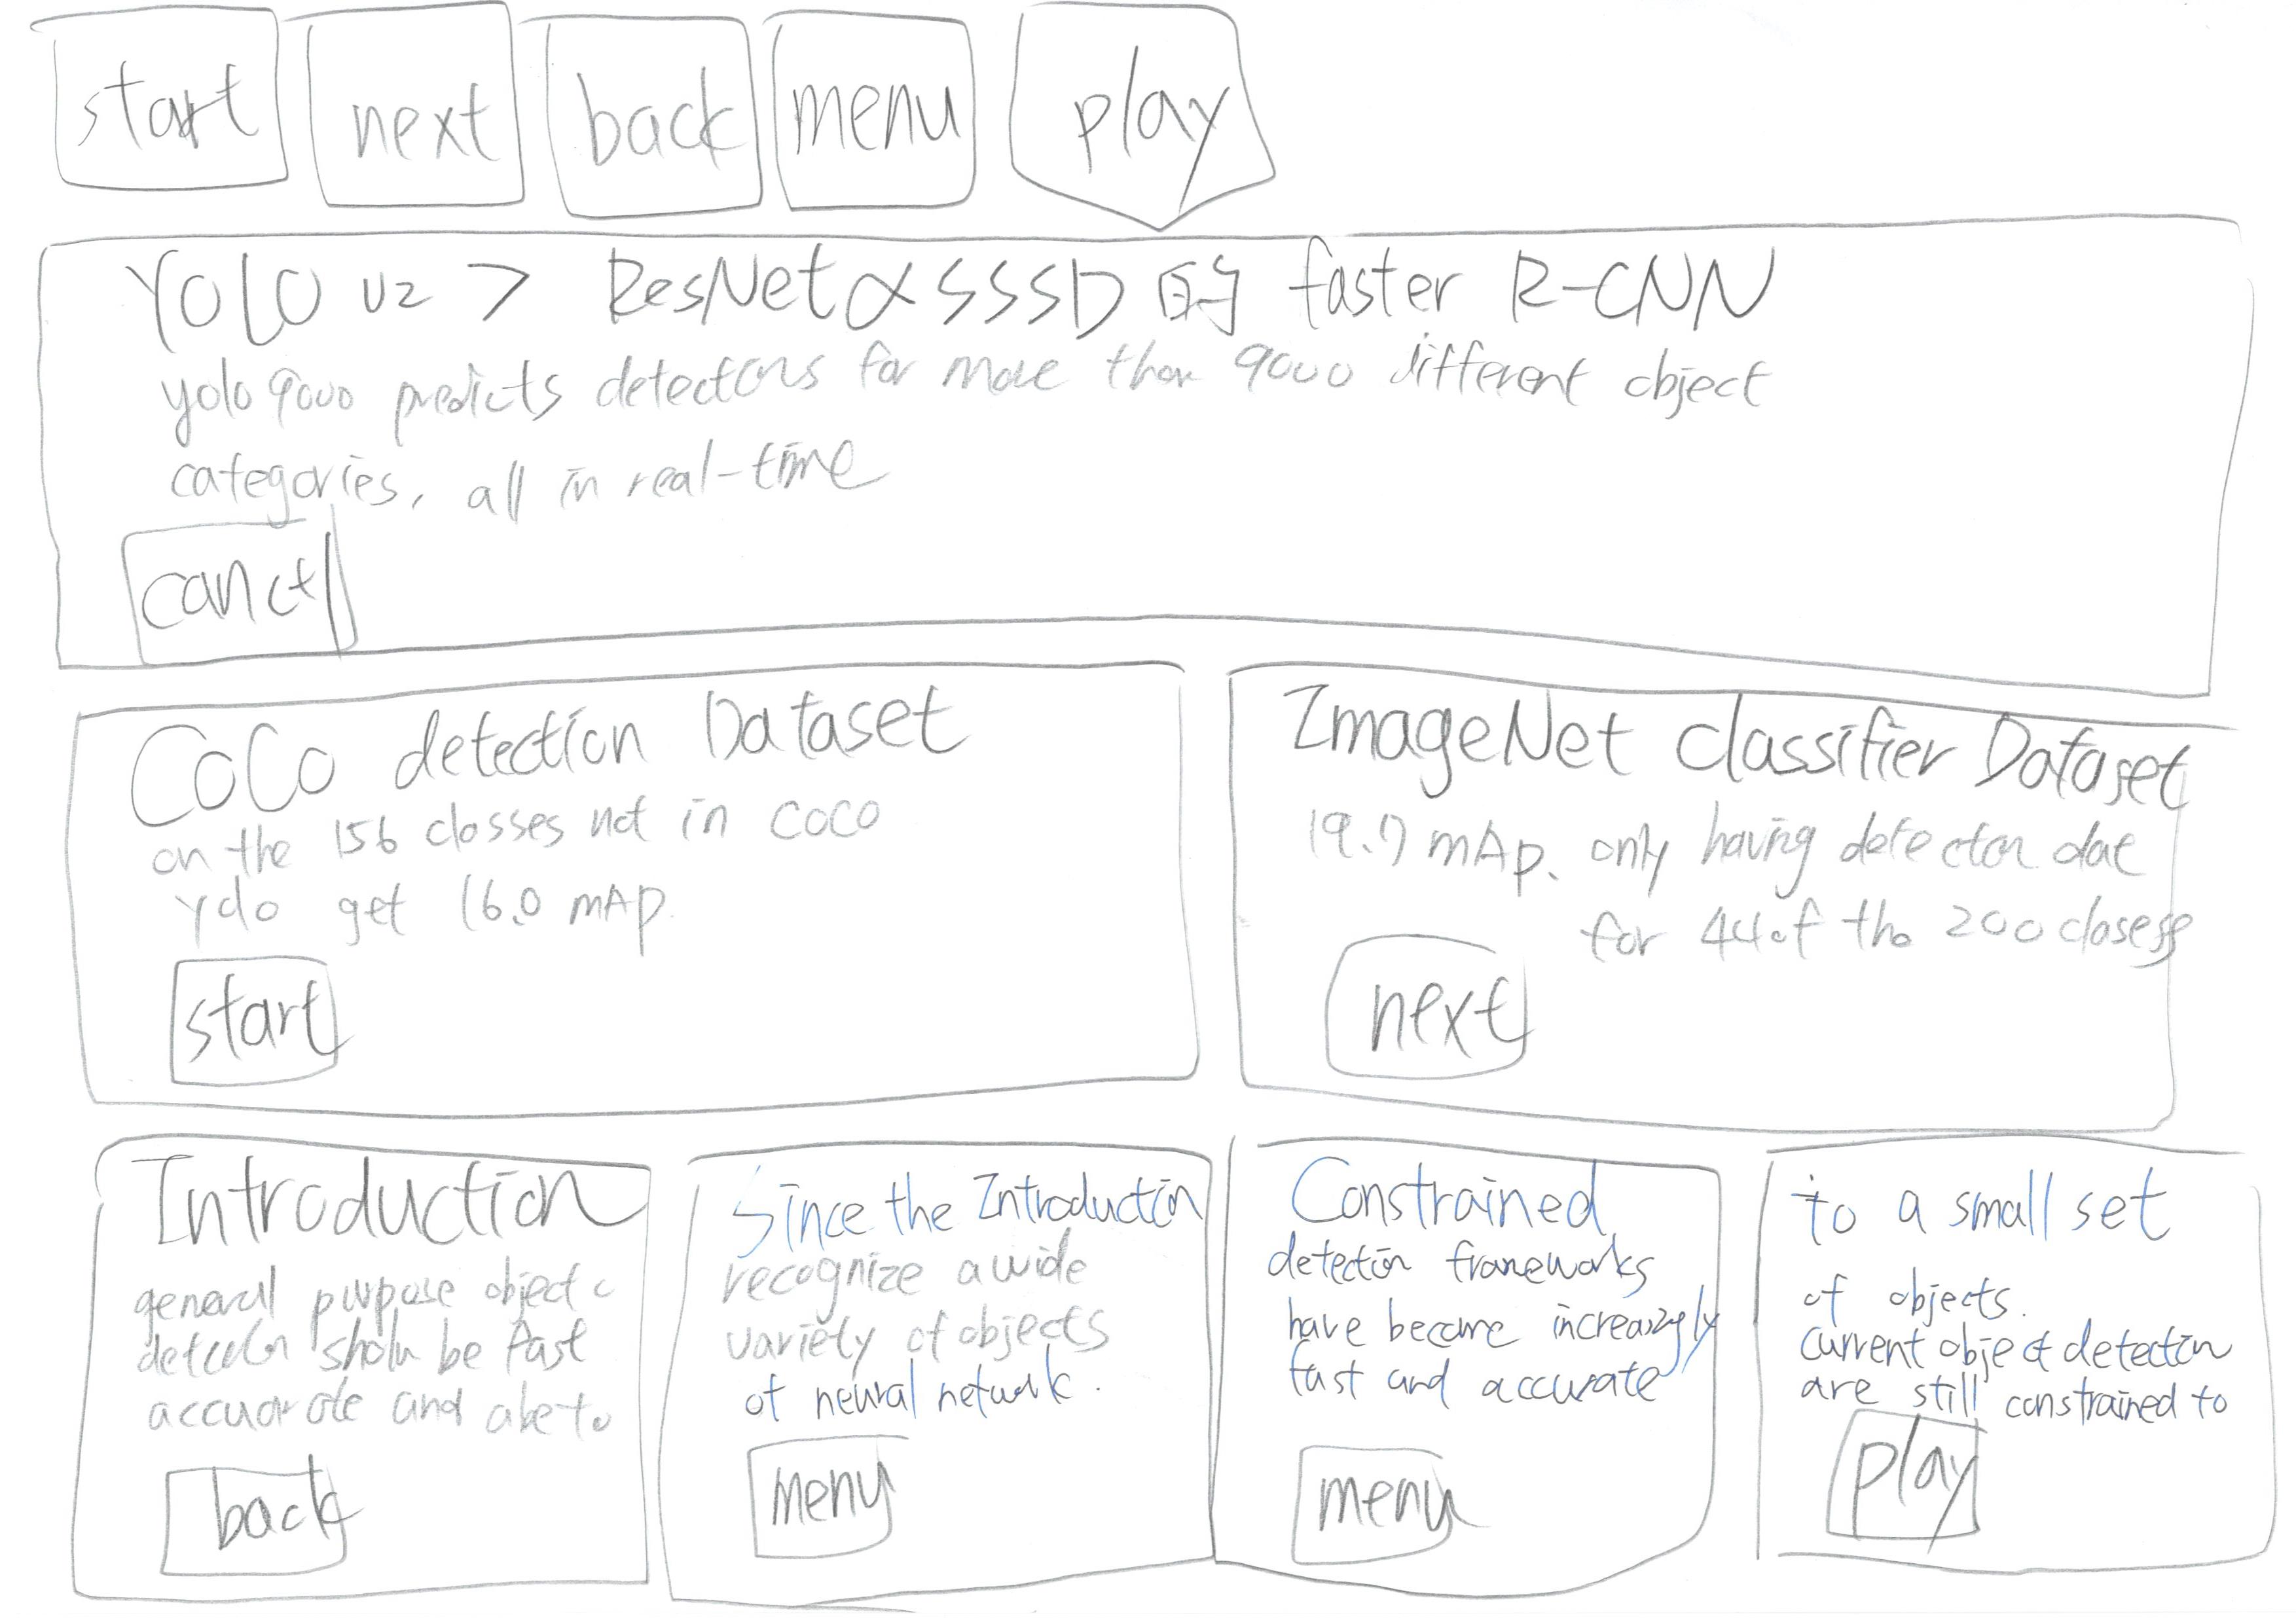 start next back menu play
YOLO v2 > ResNet SSSD 的 faster R-CNN
yolo 9000 predicts detectons for more than 9000 different object
categories, all in real-time
cancel
CoCo detection Dataset
on the 156 classes not in coco
yolo get 16.0 mAp.
start
ImageNet classifier Dataset
19.7 mAp. only having detecton
for 44 of the 200
next
Introduction
general purpose object
be fast
and
back
Since the Introduction
recognize a wide
variety of objects
of neural network.
menu
Constrained
detection frameworks
have become increasingly
fast and accurate
menu
to a small set
of objects.
current object detection
are still constrained to
play